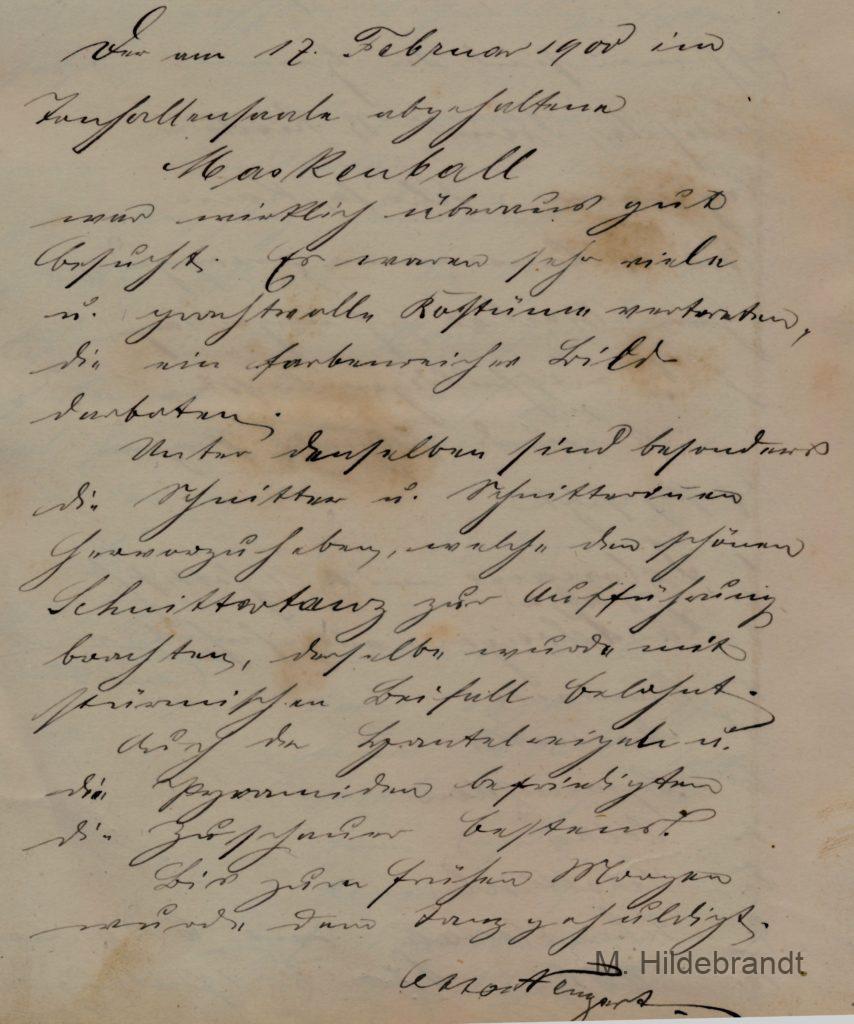 Der am 17. Februar 1900 im
Tonhallensaale abgehaltene
Maskenball
war wirklich überaus gut
besucht. Es waren sehr viele
u. prachtvolle Kostüme vertreten,
die ein farbenreiches Bild
darboten.
Unter denselben sind besonders
die Schnitter u. Schnitterinnen
hervorzuheben, welche den schönen
Schnittertanz zur Aufführung
brachten, derselbe wurde mit
stürmischen Beifall belohnt.
Auch der Hantelreigen u.
die Pyramiden befriedigten
die Zuschauer bestens.
Bis zum frühen Morgen
wurde dem Tanz gehuldigt.
Otto
M. Hildebrandt